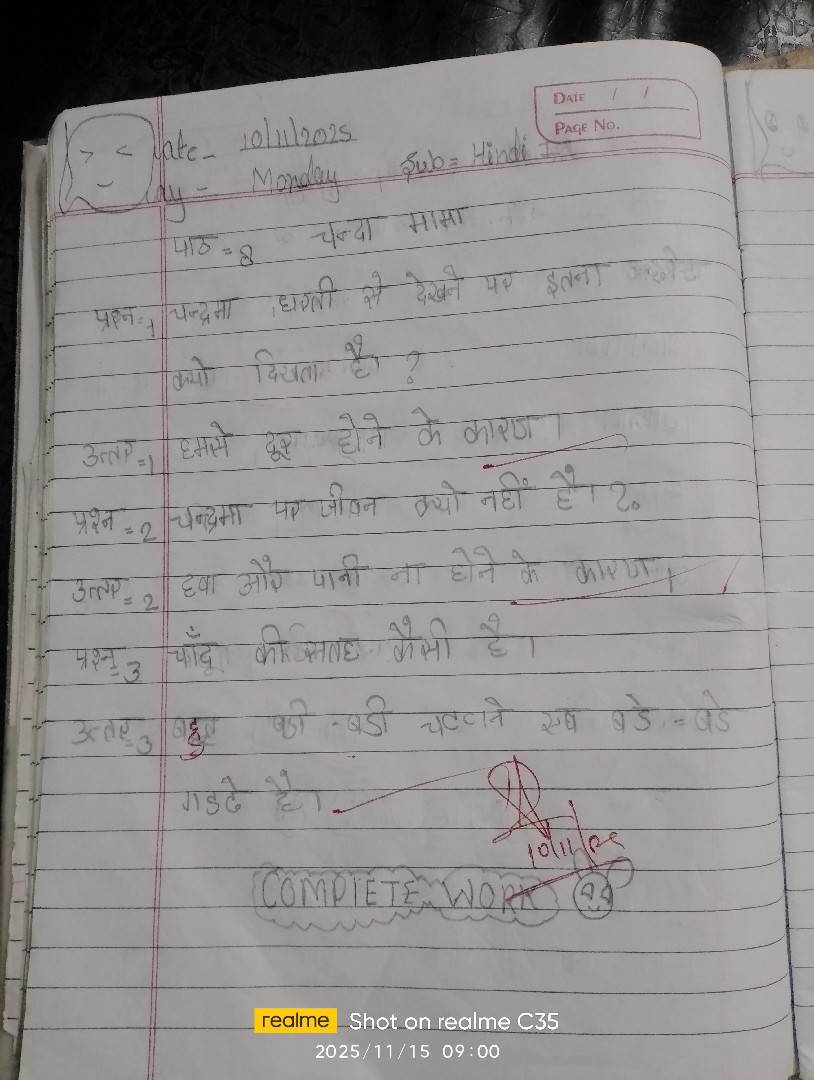 DATE / /
PAGE NO.
Date - 10/11/2025
Day - Monday Sub = Hindi
पाठ = 8 चन्दा मामा
प्रश्न = 1 चन्द्रमा धरती से देखने पर इतना
क्यो दिखता है। ?
उत्तर = 1 हमसे दूर होने के कारण।
प्रश्न = 2 चन्द्रमा पर जीवन क्यो नहीं है। ?
उत्तर = 2 हवा और पानी ना होने के कारण।
प्रश्न = 3 चाँद की सतह कैसी है।
उत्तर = 3 बहुत बडी - बडी चटटाने एंव बडे = बडे
गडढे है।
10/11/25
COMPLETE WORK
realme Shot on realme C35
2025/11/15 09:00